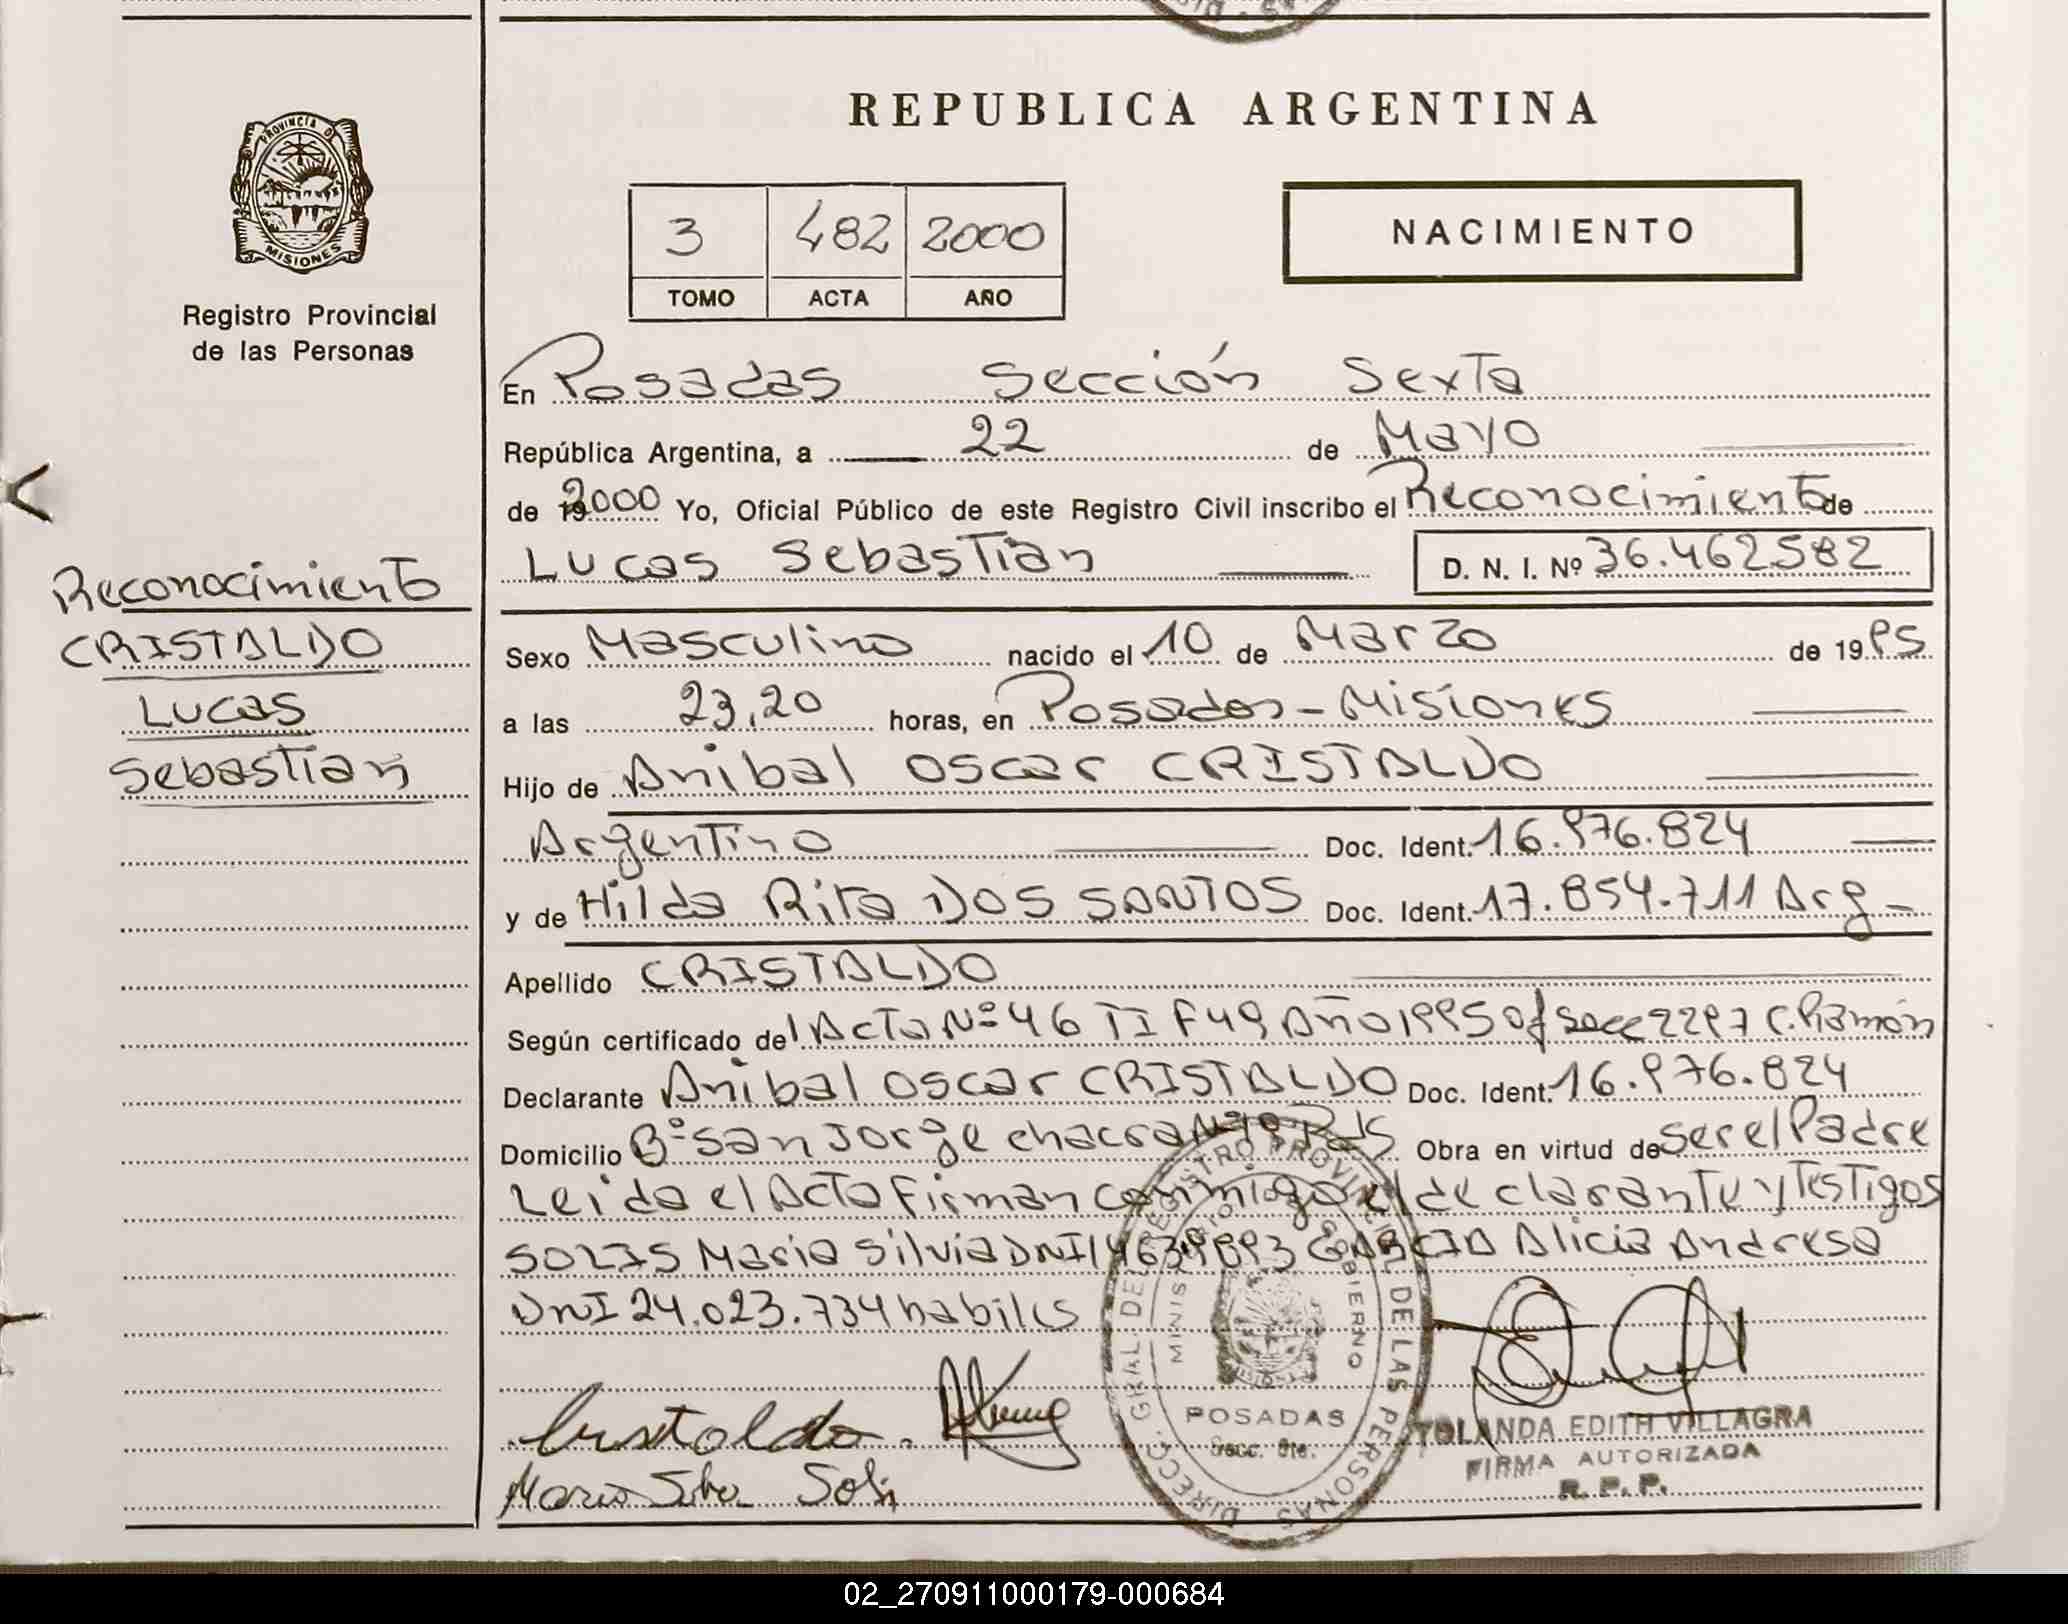 REPUBLICA ARGENTINA
PROVINCIA D
MISIONES
Registro Provincial
de las Personas
3 482 2000
TOMO ACTA AÑO
NACIMIENTO
En Posadas Sección Sexta
República Argentina, a 22 de Mayo
de 2000 Yo, Oficial Público de este Registro Civil inscribo el Reconocimiento de
Lucas Sebastian D. N. I. Nº 36.462582
Reconocimiento
CRISTALDO
Lucas
Sebastian
Sexo Masculino nacido el 10 de Marzo de 1995
a las 23,20 horas, en Posadas - Misiones
Hijo de Anibal Oscar CRISTALDO
Argentino Doc. Ident. 16.976.824
y de Hilda Rita DOS SANTOS Doc. Ident. 17.854.711 Arg
Apellido CRISTALDO
Según certificado del Acta Nº 46 TI F49 Año 1995 of Secc 2297 C. Ramón
Declarante Anibal Oscar CRISTALDO Doc. Ident. 16.976.824
Domicilio Bº San Jorge chacra Pdas Obra en virtud de ser el Padre
Leida el Acta Firman conmigo el declarante y Testigos
SOLIS Maria Silvia DNI GARCIA Alicia Andresa
DNI 24.023.734 habiles
Cristaldo.
Maria Silva Solis
DIRECC. GRAL DEL REGISTRO PROVINCIAL DE LAS PERSONAS
MINISTERIO GOBIERNO
POSADAS
Secc. 6ta.
YOLANDA EDITH VILLAGRA
FIRMA AUTORIZADA
R. P. P.
02_270911000179-000684